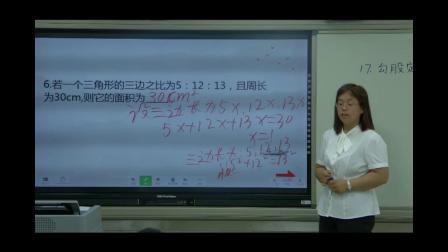 6.若一个三角形的三边之比为5：12：13，且周长
为30cm,则它的面积为 30cm²
设三边长为5x,12x,13x
5x+12x+13x=30
x=1
三边长为:5,12,13
5²+12²=13²
17.勾股定